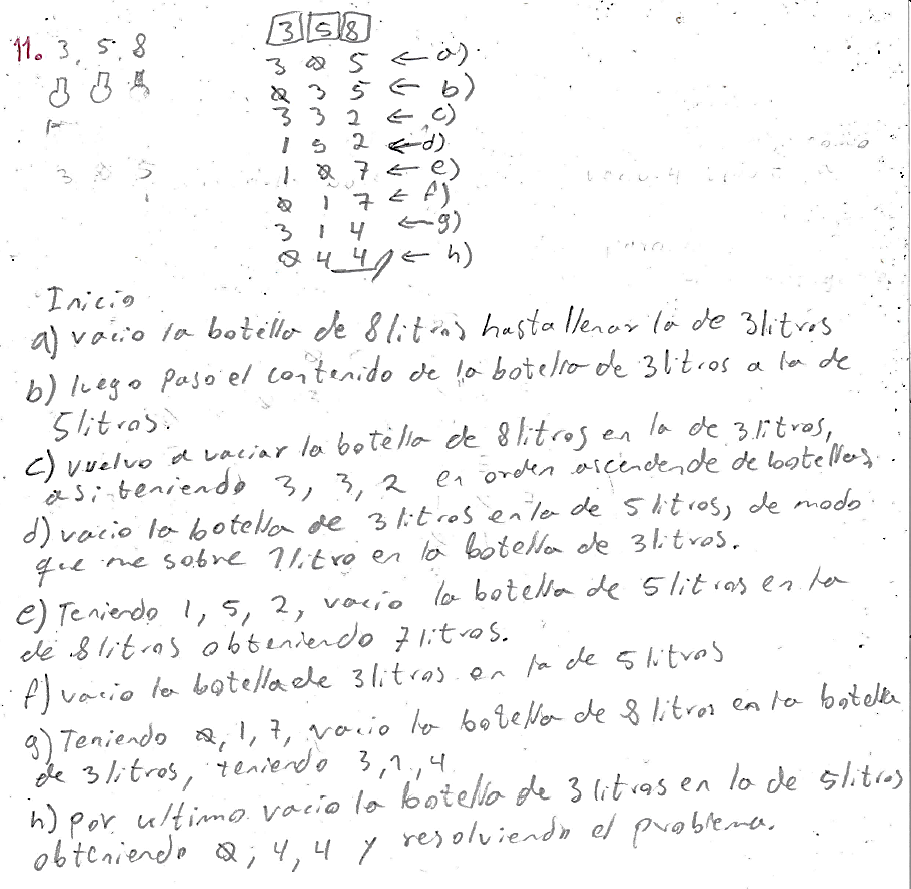 11. 3, 5, 8
3 5 8
3 0 5 ← a)
0 3 5 ← b)
3 3 2 ← c)
1 5 2 ← d)
1 0 7 ← e)
0 1 7 ← f)
3 1 4 ← g)
0 4 4 ← h)
3 0 5
Inicio
a) vacio la botella de 8 litros hasta llenar la de 3 litros
b) luego paso el contenido de la botella de 3 litros a la de
5 litros.
c) vuelvo a vaciar la botella de 8 litros en la de 3 litros,
asi teniendo 3, 3, 2 en orden ascendende de botellas.
d) vacio la botella de 3 litros en la de 5 litros, de modo
que me sobre 1 litro en la botella de 3 litros.
e) Teniendo 1, 5, 2, vacio la botella de 5 litros en la
de 8 litros obteniendo 7 litros.
f) vacio la botella de 3 litros en la de 5 litros
g) Teniendo 0, 1, 7, vacio la botella de 8 litros en la botella
de 3 litros, teniendo 3, 1, 4
h) por ultimo vacio la botella de 3 litros en la de 5 litros
obteniendo 0, 4, 4 y resolviendo el problema.